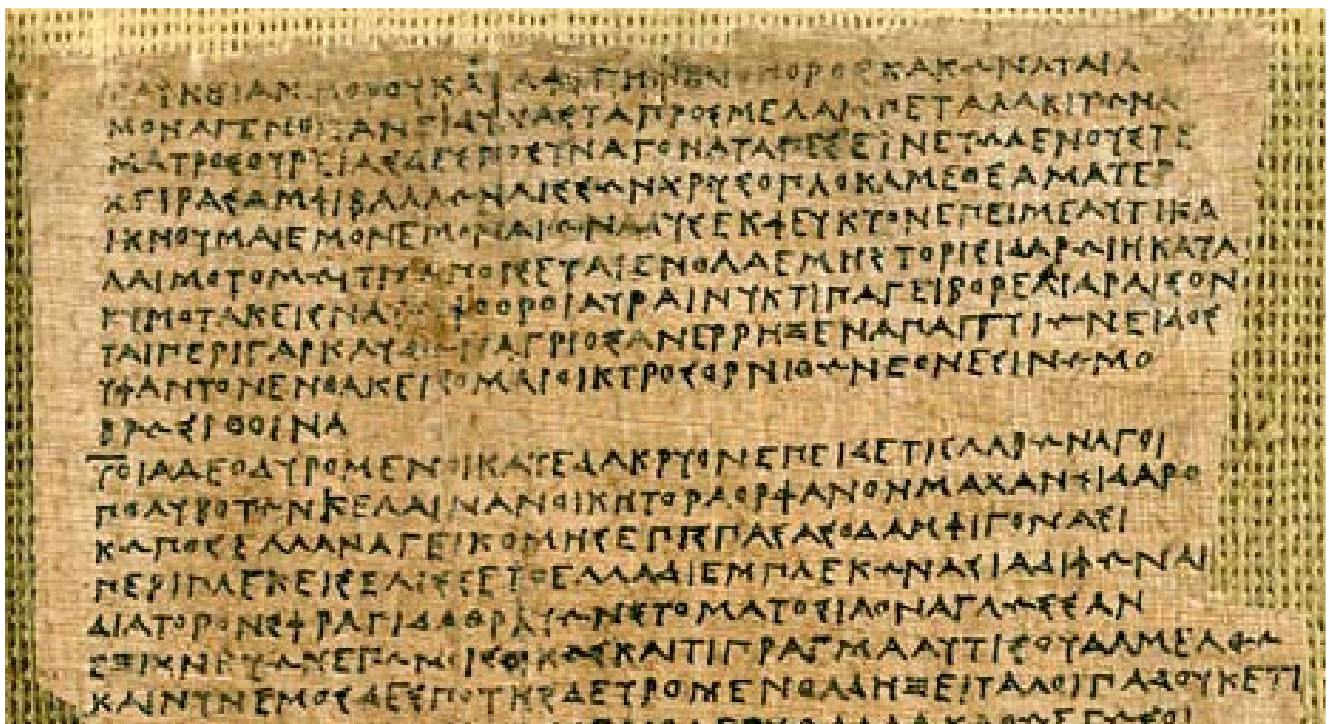 ΠΟΡΟΣΚΑΚΩΝΛΥΑΙΑ
ΜΟΝΑΓΕΝΟΙΤΑΝΕΙΔΥΝΑΣΤΑΠΡΟΣΜΕΛΑΜΠΕΤΑΛΑΚΙΤΩΝΑ
ΜΑΤΡΟΣΟΥΡΕΙΑΣΔΕΣΠΟΣΥΝΑΓΟΝΑΤΑΠΕΣΕΙΝΕΥΩΛΕΝΟΥΣΤΕ
ΧΕΙΡΑΣΑΜΦΙΒΑΛΛΩΝΛΙΣΣΩΝΧΡΥΣΟΠΛΟΚΑΜΕΘΕΑΜΑΤΕΡ
ΙΚΝΟΥΜΑΙΕΜΟΝΕΜΟΝΑΙΩΝΑΔΥΣΕΚΦΕΥΚΤΟΝΕΠΕΙΜΕΑΥΤΙΚΑ
ΛΑΙΜΟΤΟΜΩΙΤΙΣΑΠΟΙΣΕΤΑΙΕΝΘΑΔΕΜΗΣΤΟΡΙΣΙΔΑΡΩΙΗΚΑΤΑ
ΚΥΜΟΤΑΚΕΙΣΝΑΥΣΙΦΘΟΡΟΙΑΥΡΑΙΝΥΚΤΙΠΑΓΕΙΒΟΡΕΑΙΔΙΑΡΑΙΣΟΝ
ΤΑΙΠΕΡΙΓΑΡΚΛΥΔΩΝΑΓΡΙΟΣΑΝΕΡΡΗΞΕΝΑΠΑΝΓΥΙΩΝΕΙΔΟΣ
ΥΦΑΝΤΟΝΕΝΘΑΚΕΙΣΟΜΑΙΟΙΚΤΡΟΣΟΡΝΙΘΩΝΕΘΝΕΣΙΝΩΜΟ
ΒΡΩΣΙΘΟΙΝΑ
ΤΟΙΑΔΕΟΔΥΡΟΜΕΝΟΙΚΑΤΕΔΑΚΡΥΟΝΕΠΕΙΔΕΤΙΣΛΑΒΩΝΑΓΟΙ
ΠΟΛΥΒΟΤΩΝΚΕΛΑΙΝΑΝΟΙΚΗΤΟΡΑΟΡΦΑΝΟΝΜΑΧΑΝΣΙΔΑΡΟ
ΚΩΠΟΣΕΛΛΑΝΑΓΕΙΚΟΜΗΣΕΠΙΣΠΑΣΑΣΟΔΑΜΦΙΓΟΝΑΣΙ
ΠΕΡΙΠΛΕΚΕΙΣΕΛΙΣΣΕΤΟΕΛΛΑΔΙΕΜΠΛΕΚΩΝΑΣΙΑΔΙΦΩΝΑΙ
ΔΙΑΤΟΡΟΝΣΦΡΑΓΙΔΑΘΡΑΥΩΝΣΤΟΜΑΤΟΣΙΑΟΝΑΓΛΩΣΣΑΝ
ΕΞΙΧΝΕΥΩΝΕΓΩΜΟΙΣΟΙΚΩΣΚΑΙΤΙΠΡΑΓΜΑΑΥΤΙΣΟΥΔΑΜΕΛΘΩ
ΚΑΙΝΥΝΕΜΟΣΔΕΣΠΟΤΗΣΔΕΥΡΟΜΕΝΘΑΔΗΞΕΙΤΑΛΟΙΠΑΔΟΥΚΕΤΙ